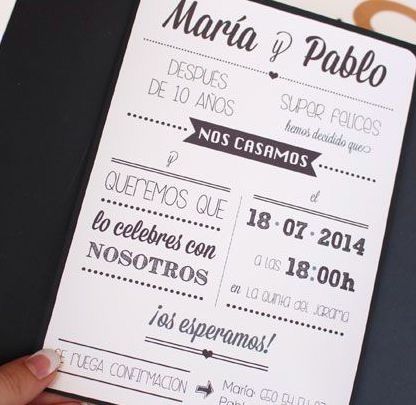 María y Pablo
DESPUES
DE 10 AÑOS
SUPER FELICES
hemos decidido que
NOS CASAMOS
y
QUEREMOS QUE
lo celebres con
NOSOTROS
el
18·07·2014
a las 18:00h
en LA QUINTA del JARAMA
¡os esperamos!
SE RUEGA CONFIRMACION
María:
Pablo